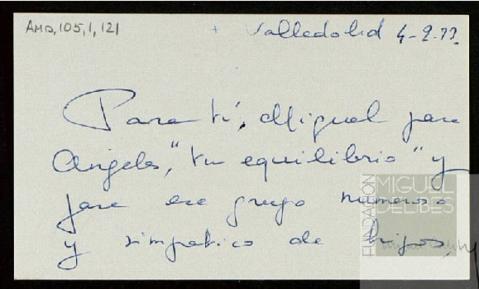 AMD,105,1,121
Valladolid 4-2-77
Para ti, Miguel para
Angeles, "tu equilibrio" y
para ese grupo numeroso
y simpatico de hijos,
FUNDACIÓN
MIGUEL
DELIBES